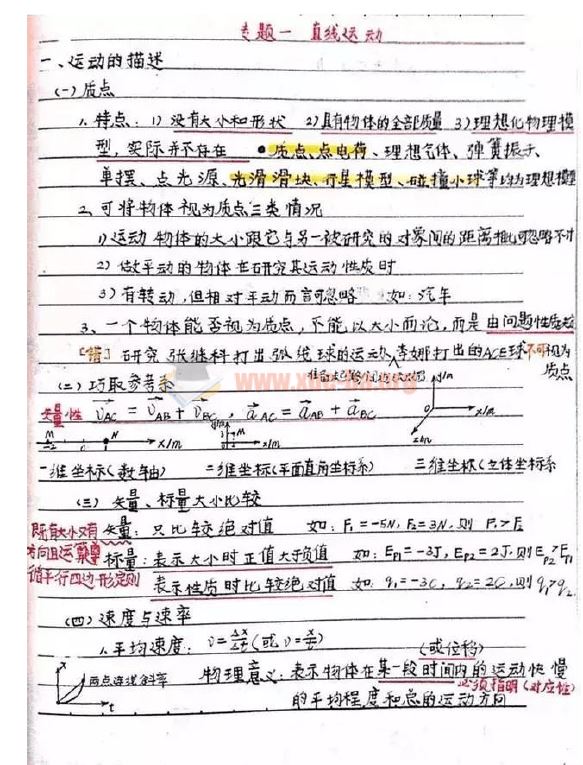 专题一 直线运动
一、运动的描述
(一)质点
1、特点：1) 没有大小和形状 2)具有物体的全部质量 3)理想化物理模
型，实际并不存在 ●质点、点电荷、理想气体、弹簧振子、
单摆、点光源、光滑滑块、行星模型、碰撞小球等均为理想模型
2、可将物体视为质点三类情况
1)运动物体的大小跟它与另一被研究的对象间的距离相比可忽略不计
2) 做平动的物体在研究其运动性质时
3) 有转动,但相对平动而言可忽略 如：汽车
3、一个物体能否视为质点，不能以大小而论，而是由问题性质定
[错] 研究张继科打出弧线球的运动,李娜打出的ACE球不可视为
质点
(二) 巧取参考系
矢量性 v_AC = v_AB + v_BC , a_AC = a_AB + a_BC
y/m
y/m
M N x/m
-2 0 1
M
x/m
0 x/m
z/m
一维坐标(数轴) 二维坐标(平面直角坐标系) 三维坐标(立体坐标系
(三) 矢量、标量大小比较
既有大小又有 矢量：只比较绝对值 如：F₁=-5N, F₂=3N,则 F₁>F₂
方向且运算遵 标量：表示大小时正值大于负值 如：Ep1=-3J, Ep2=2J.则Ep2>Ep1
循平行四边形定则 表示性质时比较绝对值 如：q₁=-3C, q₂=2C,则q₁>q₂
(四) 速度与速率
1、平均速度：v=Δx/Δt(或v=x/t)
(或位移)
x 两点连线斜率 t
物理意义：表示物体在某一段时间内的运动快慢
必须指明(对应性)
的平均程度和总的运动方向